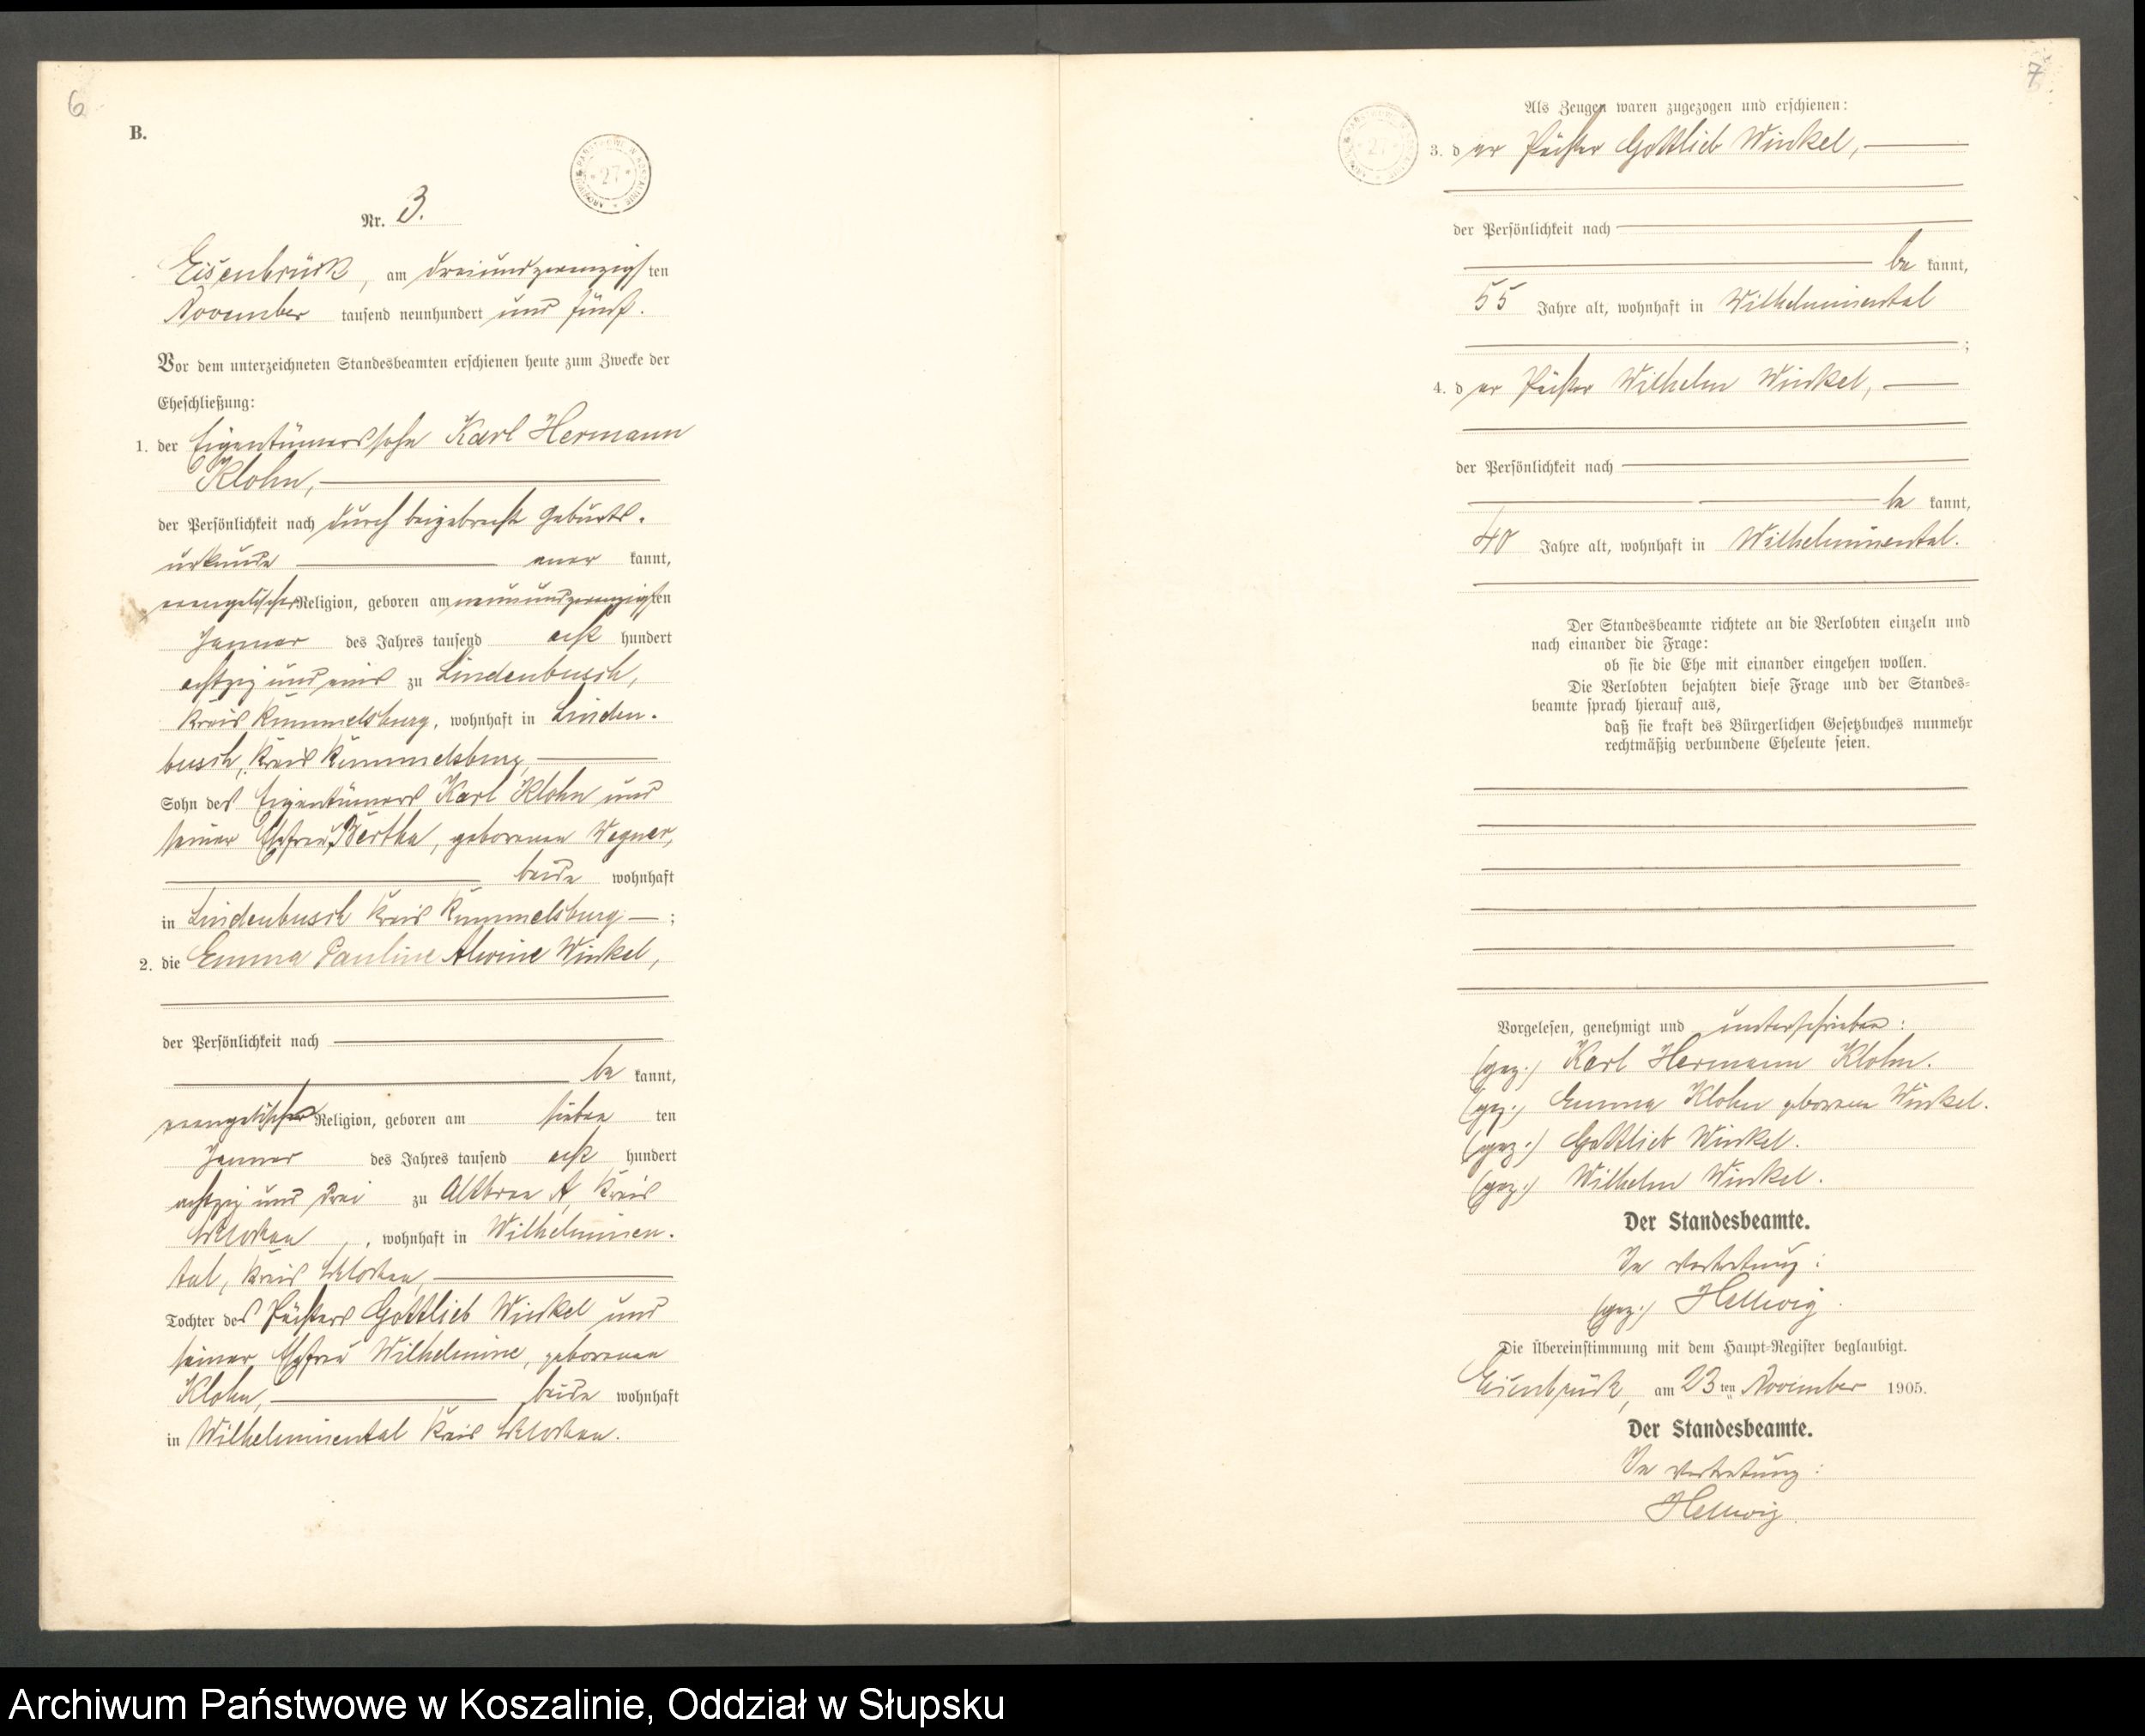 6
B.
Nr. 3.
Eisenbrück, am dreiundzwanzigsten
November tausend neunhundert und fünf.
Vor dem unterzeichneten Standesbeamten erschienen heute zum Zwecke der
Eheschließung:
1. der Eigentümerssohn Karl Hermann
Klohn,
der Persönlichkeit nach durch beigebrachte Geburts-
urkunde aner kannt,
evangelischer Religion, geboren am neunundzwanzigsten
Januar des Jahres tausend acht hundert
achtzig und eins zu Lindenbusch,
Kreis Rummelsburg, wohnhaft in Linden-
busch, Kreis Rummelsburg,
Sohn des Eigentümers Karl Klohn und
seiner Ehefrau Bertha, geborenen Wegner,
beide wohnhaft
in Lindenbusch Kreis Rummelsburg;
2. die Emma Pauline Alwine Winkel,
der Persönlichkeit nach
be kannt,
evangelischer Religion, geboren am sieben ten
Januar des Jahres tausend acht hundert
achtzig und drei zu Altbraa A, Kreis
Schlochau, wohnhaft in Wilhelminen-
tal, Kreis Schlochau,
Tochter des Pächters Gottlieb Winkel und
seiner Ehefrau Wilhelmine, geborenen
Klohn, beide wohnhaft
in Wilhelminental Kreis Schlochau.
7
Als Zeugen waren zugezogen und erschienen:
3. der Pächter Gottlieb Winkel,
der Persönlichkeit nach
be kannt,
55 Jahre alt, wohnhaft in Wilhelminental
;
4. der Pächter Wilhelm Winkel,
der Persönlichkeit nach
be kannt,
40 Jahre alt, wohnhaft in Wilhelminental.
Der Standesbeamte richtete an die Verlobten einzeln und
nach einander die Frage:
ob sie die Ehe mit einander eingehen wollen.
Die Verlobten bejahten diese Frage und der Standes-
beamte sprach hierauf aus,
daß sie kraft des Bürgerlichen Gesetzbuches nunmehr
rechtmäßig verbundene Eheleute seien.
Vorgelesen, genehmigt und unterschrieben:
(gez.) Karl Hermann Klohn.
(gez.) Emma Klohn geborene Winkel.
(gez.) Gottlieb Winkel.
(gez.) Wilhelm Winkel.
Der Standesbeamte.
In Vertretung:
(gez.) Hellwig.
Die Übereinstimmung mit dem Haupt-Register beglaubigt.
Eisenbrück, am 23ten November 1905.
Der Standesbeamte.
In Vertretung:
Hellwig.
Archiwum Państwowe w Koszalinie, Oddział w Słupsku